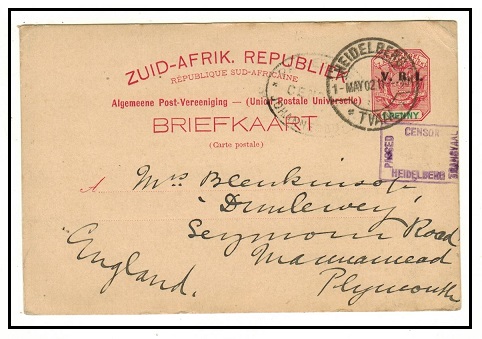 ZUID-AFRIK. REPUBLIEK
RÉPUBLIQUE SUD-AFRICAINE
Algemeene Post-Vereeniging — (Union Postale Universelle)
BRIEFKAART
(Carte postale)
HEIDELBERG
1-MAY 02
TVAAL
V. R. I.
PENNY
PASSED
CENSOR
TRANSVAAL
HEIDELBERG
A Mrs Blenkinsop
"Dunlewey"
Seymour Road
Mannamead
Plymouth
England.